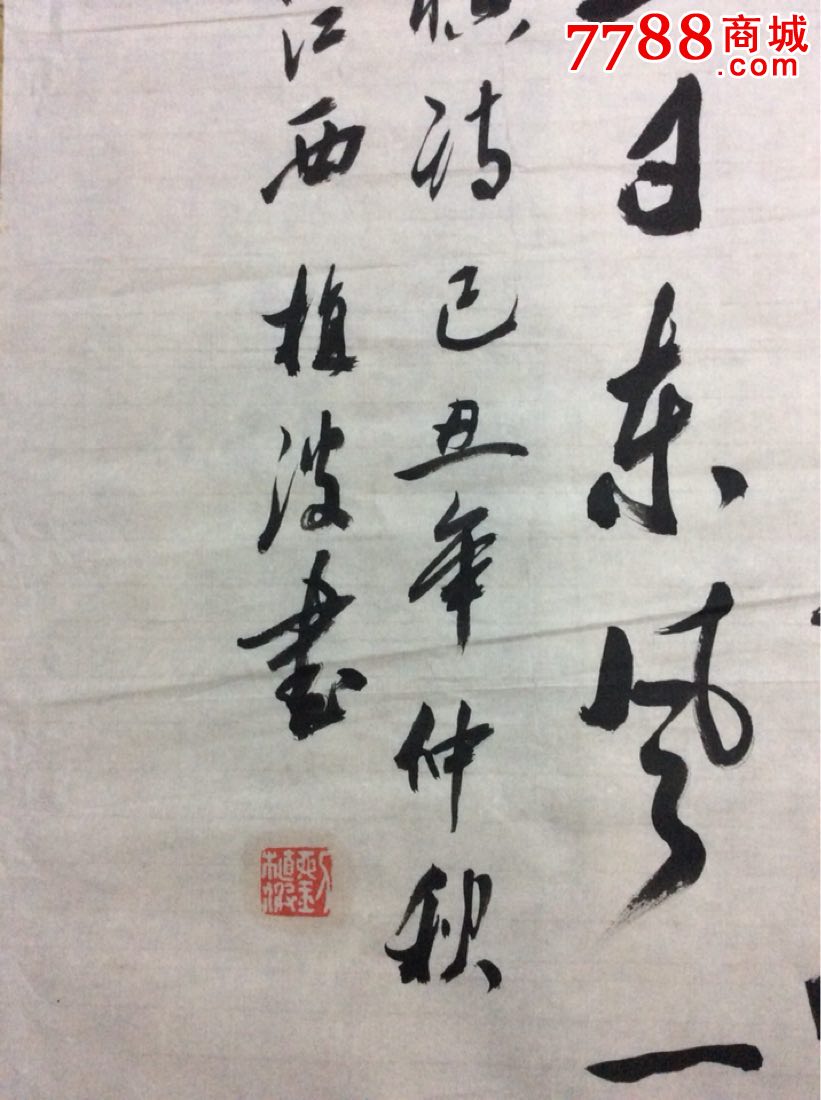 7788商城
.com
东风一
诗己丑年仲秋
江西植波书
劉植波